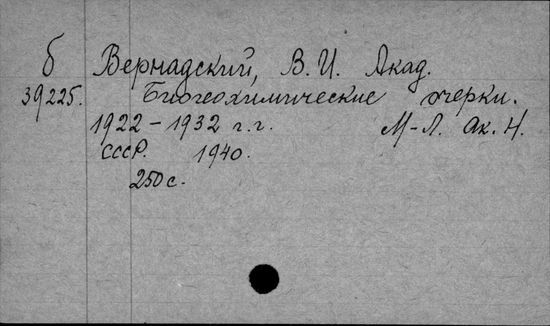 б Вернадский, В. И. Акад.
39225. Биогеохимические очерки.
1922 – 1932 г.г. М-Л. Ак. Н.
СССР. 1940.
250 с.